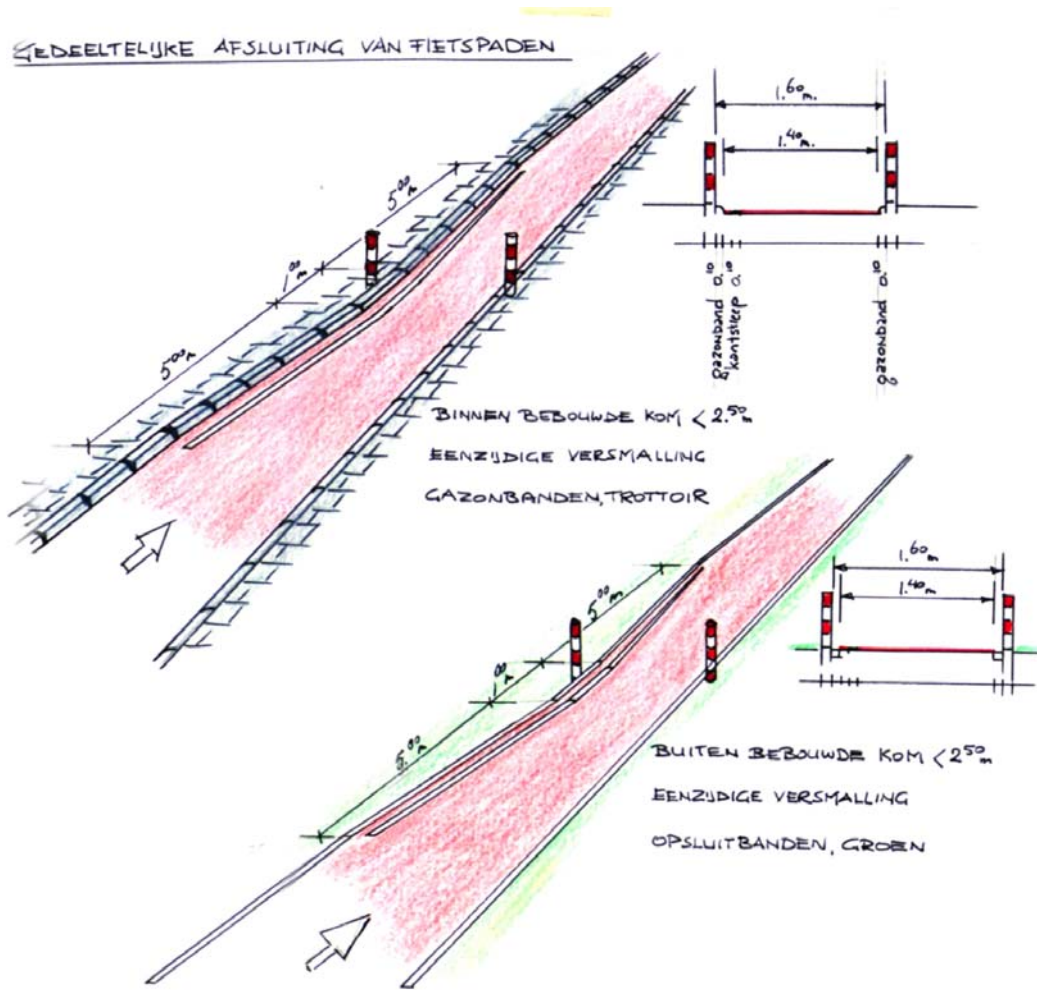 GEDEELTELIJKE AFSLUITING VAN FIETSPADEN
1.60 m.
1.40 m.
5.00 m
1.00 m
5.00 m
gazonband 0.10
kantstreep 0.10
gazonband 0.10
BINNEN BEBOUWDE KOM < 2.50 m
EENZIJDIGE VERSMALLING
GAZONBANDEN, TROTTOIR
1.60 m
1.40 m
5.00 m
1.00 m
5.00 m
BUITEN BEBOUWDE KOM < 2.50 m
EENZIJDIGE VERSMALLING
OPSLUITBANDEN, GROEN